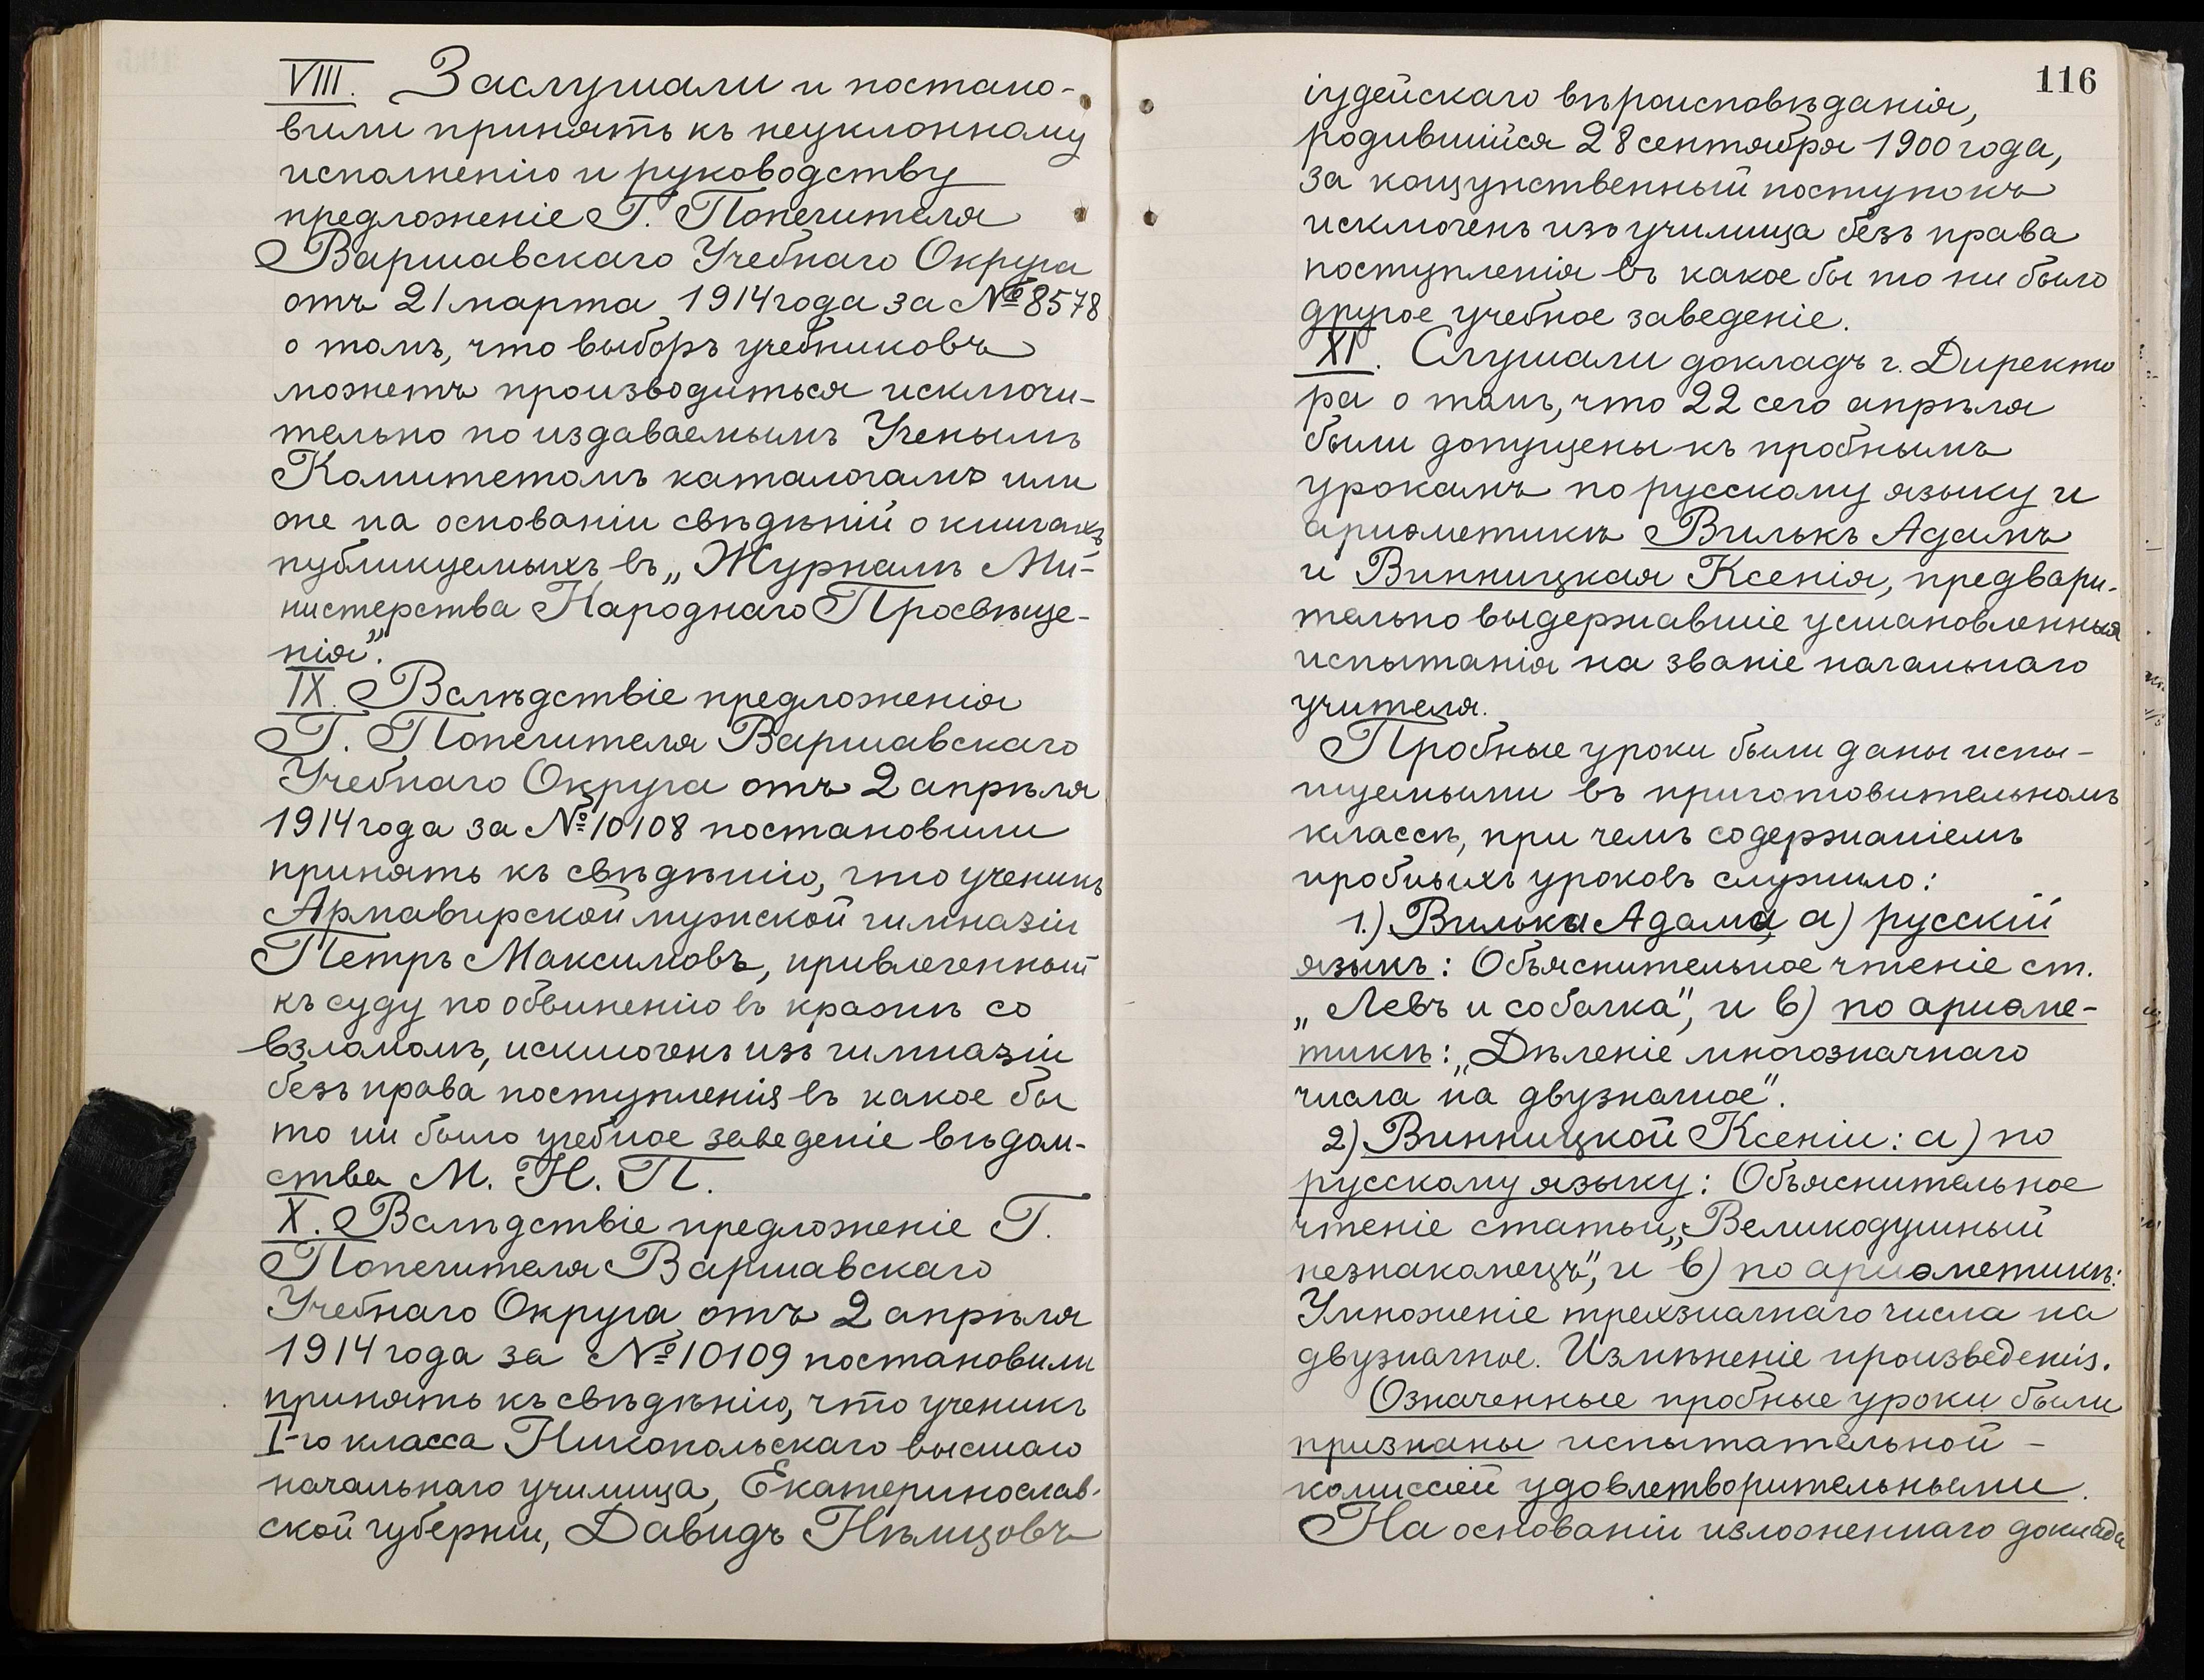 VIII. Заслушали и постано-
вили принять къ неуклонному
исполненію и руководству
предложеніе Г. Попечителя
Варшавскаго Учебнаго Округа
отъ 21 марта 1914 года за № 8578
о томъ, что выборъ учебниковъ
можетъ производиться исключи-
тельно по издаваемымъ Ученымъ
Комитетомъ каталогамъ или
же на основаніи свѣдѣній о книгахъ,
публикуемыхъ въ „Журналѣ Ми-
нистерства Народнаго Просвѣще-
нія".
IX. Вслѣдствіе предложенія
Г. Попечителя Варшавскаго
Учебнаго Округа отъ 2 апрѣля
1914 года за № 10108 постановили
принять къ свѣдѣнію, что ученикъ
Армавирской мужской гимназіи
Петръ Максимовъ, привлеченный
къ суду по обвиненію въ кражѣ со
взломомъ, исключенъ изъ гимназіи
безъ права поступленія въ какое бы
то ни было учебное заведеніе вѣдом-
ства М. Н. П.
X. Вслѣдствіе предложеніе Г.
Попечителя Варшавскаго
Учебнаго Округа отъ 2 апрѣля
1914 года за № 10109 постановили
принять къ свѣдѣнію, что ученикъ
I-го класса Никопольскаго высшаго
начальнаго училища, Екатеринослав-
ской губерніи, Давидъ Нѣмцовъ
116
іудейскаго вѣроисповѣданія,
родившійся 28 сентября 1900 года,
за кощунственный поступокъ
исключенъ изъ училища безъ права
поступленія въ какое бы то ни было
другое учебное заведеніе.
XI. Слушали докладъ г. Директо
ра о томъ, что 22 сего апрѣля
были допущены къ пробнымъ
урокамъ по русскому языку и
ариѳметикѣ Вилькъ Адамъ
и Винницкая Ксенія, предвари-
тельно выдержавшіе установленныя
испытанія на званіе начальнаго
учителя.
Пробные уроки были даны испы-
туемыми въ приготовительномъ
классѣ, при чемъ содержаніемъ
пробныхъ уроковъ служило:
1.) Вилька Адама, а) русскій
языкъ: Объяснительное чтеніе ст.
„Левъ и собачка", и в) по ариѳме-
тикѣ: „Дѣленіе многозначнаго
числа на двузначное".
2) Винницкой Ксеніи: а) по
русскому языку: Объяснительное
чтеніе статьи „Великодушный
незнакомецъ", и в) по ариѳметикѣ:
Умноженіе трехзначнаго числа на
двузначное. Измѣненіе произведенія.
Означенные пробные уроки были
признаны испытательной -
комиссіей удовлетворительными.
На основаніи изложеннаго доклада